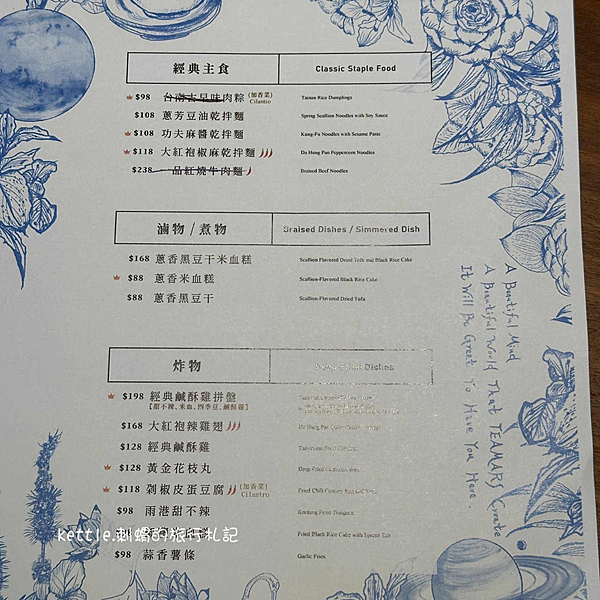 經典主食 Classic Staple Food
$98 台南古早味肉粽 (加香菜) Cilantro Tainan Rice Dumplings
$108 蔥芳豆油乾拌麵 Spring Scallion Noodles with Soy Sauce
$108 功夫麻醬乾拌麵 Kung-Fu Noodles with Sesame Paste
$118 大紅袍椒麻乾拌麵 Da Hong Pao Peppercorn Noodles
$238 一品紅燒牛肉麵 Braised Beef Noodles
滷物 / 煮物 Braised Dishes / Simmered Dish
$168 蔥香黑豆干米血糕 Scallion Flavored Dried Tofu and Black Rice Cake
$88 蔥香米血糕 Scallion-Flavored Black Rice Cake
$88 蔥香黑豆干 Scallion-Flavored Dried Tofu
炸物 Dishes
$198 經典鹹酥雞拼盤
【甜不辣、米血、四季豆、鹹酥雞】
$168 大紅袍辣雞翅 Da Hong Pao
$128 經典鹹酥雞
$128 黃金花枝丸 Deep Fried
$118 剁椒皮蛋豆腐 (加香菜) Cilantro Fried Chili Century Egg and Tofu
$98 雨港甜不辣 Keelung Fried Tempura
Fried Black Rice Cake with
$98 蒜香薯條 Garlic Fries
A Beautiful Mind
A Beautiful World That TEAMARS Create
It Will Be Great To Have You Here.
kettle.刺蝟的旅行札記